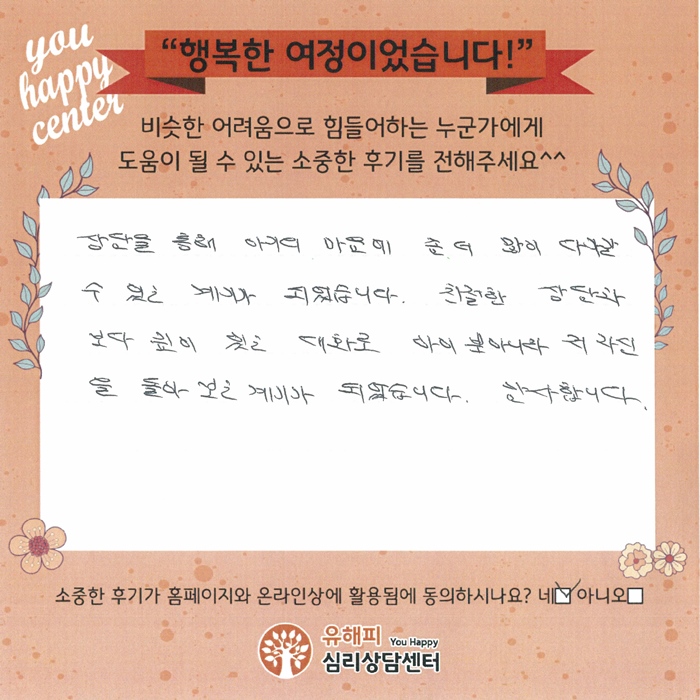 you
happy
center
“행복한 여정이었습니다!”
비슷한 어려움으로 힘들어하는 누군가에게
도움이 될 수 있는 소중한 후기를 전해주세요^^
상담을 통해 아이의 마음에 좀 더 많이 다가갈
수 있는 계기가 되었습니다. 친절한 상담과
보다 깊이 있는 대화로 아이 뿐아니라 저 자신
을 돌아 보는 계기가 되었습니다. 감사합니다.
소중한 후기가 홈페이지와 온라인상에 활용됨에 동의하시나요? 네 아니오
유해피 You Happy
심리상담센터